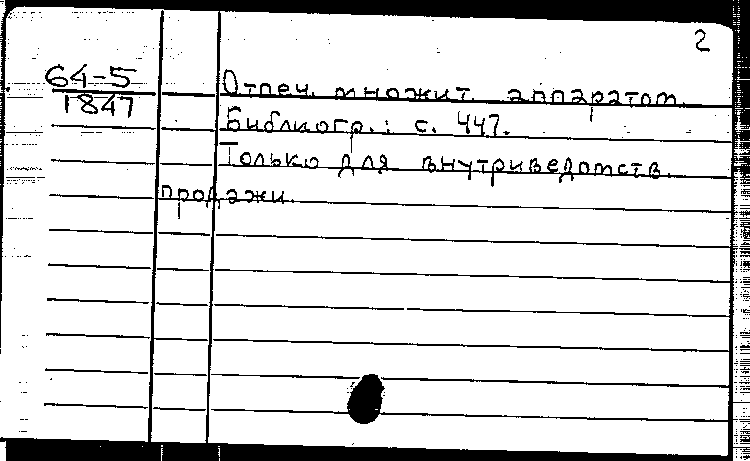 2
64-5
1847
Отпеч. множит. аппаратом.
Библиогр.: с. 447.
Только для внутриведомств.
продажи.